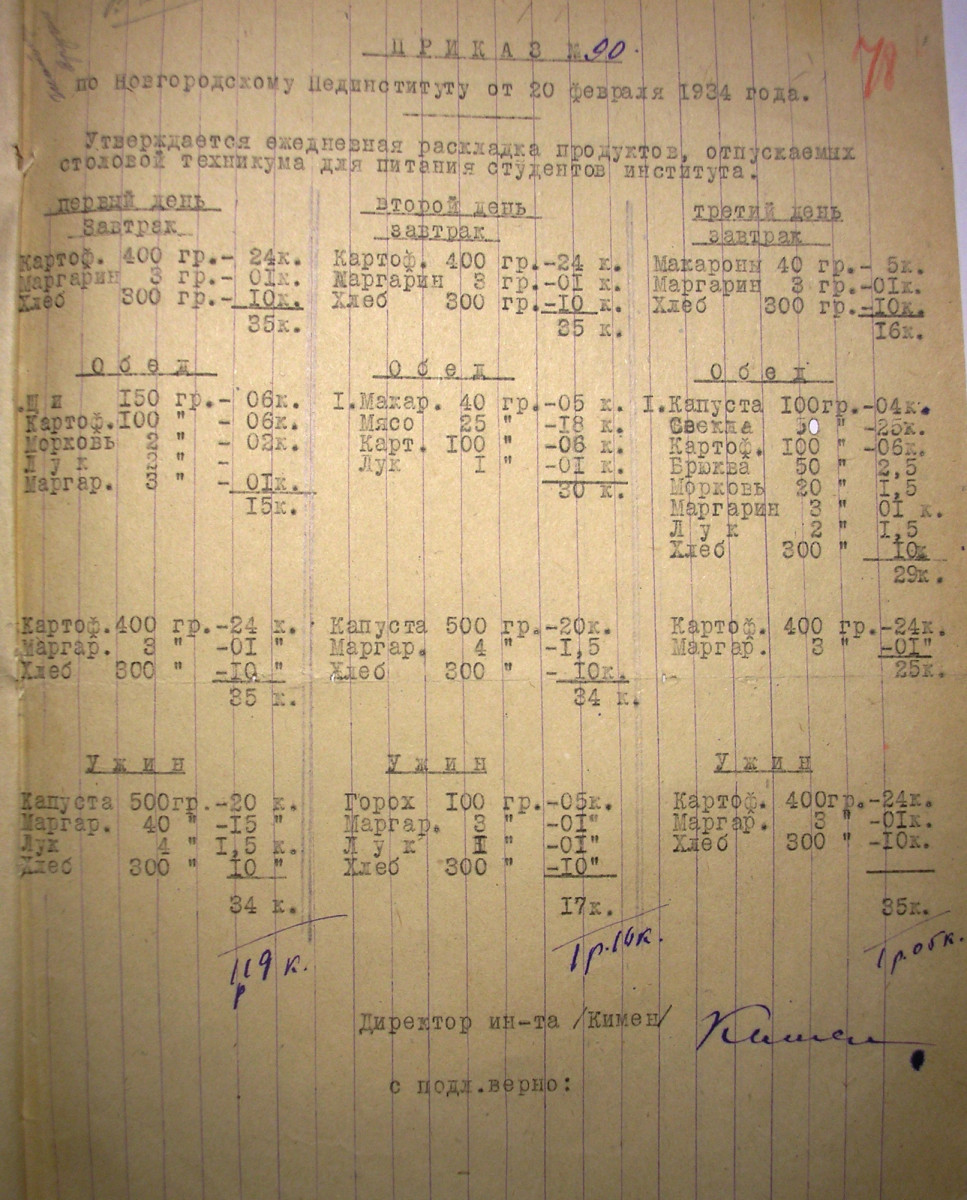 ПРИКАЗ № 90.
78
по Новгородскому Пединституту от 20 февраля 1934 года.
Утверждается ежедневная раскладка продуктов, отпускаемых
столовой техникума для питания студентов института.
первый день
Завтрак
Картоф. 400 гр.- 24к.
Маргарин 3 гр.- 01к.
Хлеб 300 гр.- 10к.
35к.
Обед
Щи 150 гр.- 06к.
Картоф.100 " - 06к.
Морковь 2 " - 02к.
Лук 2 " -
Маргар. 3 " - 01к.
15к.
Картоф.400 гр.-24 к.
Маргар. 3 " -01 "
Хлеб 300 " -10 "
35 к.
Ужин
Капуста 500гр.-20 к.
Маргар. 40 " -15 "
Лук 4 " 1,5 к.
Хлеб 300 " 10 "
34 к.
1р19 к.
второй день
завтрак
Картоф. 400 гр.-24 к.
Маргарин 3 гр.-01 к.
Хлеб 300 гр.-10 к.
35 к.
Обед
I.Макар. 40 гр.-05 к.
Мясо 25 " -18 к.
Карт. 100 " -06 к.
Лук I " -01 к.
30 к.
Капуста 500 гр.-20к.
Маргар. 4 " -1,5
Хлеб 300 " - 10к.
34 к.
Ужин
Горох 100 гр.-05к.
Маргар. 3 " -01"
Лук I " -01"
Хлеб 300 " -10"
17к.
1р.16к.
третий день
завтрак
Макароны 40 гр.- 5к.
Маргарин 3 гр.-01к.
Хлеб 300 гр.-10к.
16к.
Обед
I.Капуста 100гр.-04к.
Свекла 50 " -25к.
Картоф. 100 " -06к.
Брюква 50 " 2,5
Морковь 20 " 1,5
Маргарин 3 " 01 к.
Лук 2 " 1,5
Хлеб 300 " 10к
29к.
Картоф. 400 гр.-24к.
Маргар. 3 " -01"
25к.
Ужин
Картоф. 400гр.-24к.
Маргар. 3 " -01к.
Хлеб 300 " -10к.
35к.
1р.05к.
Директор ин-та /Кимен/ Кимен
с подл.верно: